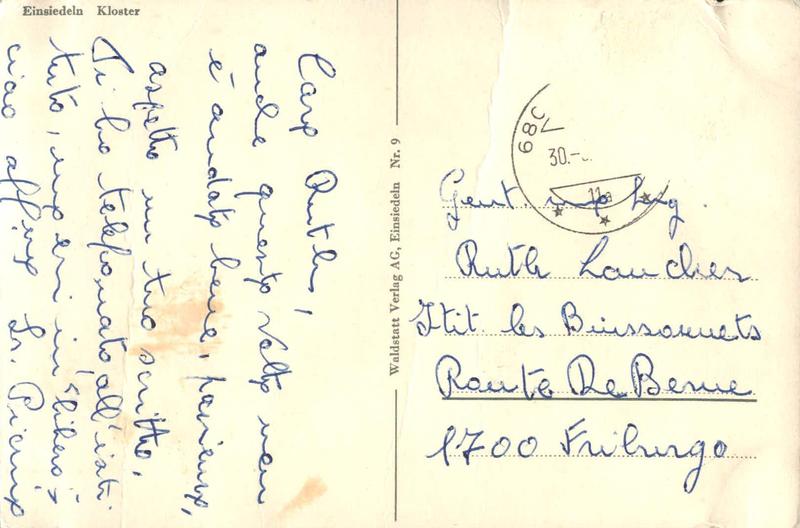 Einsiedeln Kloster
Cara Ruth,
anche questa volta non
è andata bene, pazienza,
aspetto un tuo scritto,
Ti ho telefonato all'isti
tuto, ma eri in "libera";
ciao aff.ma Sr.
Waldstatt Verlag AG, Einsiedeln Nr. 9
30.-
11a
Gent.ma Sig.
Ruth
Istit. les Buissonnets
Route De Berne
1700 Friburgo